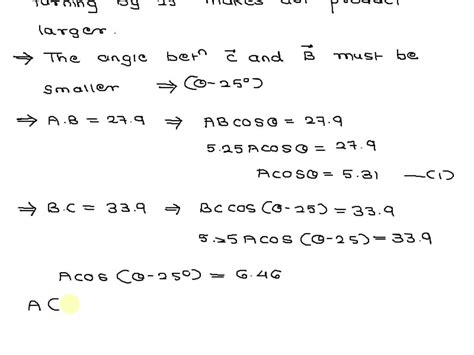 turning by 25° makes dot product
larger.
⇒ The angle betⁿ C⃗ and B⃗ must be
smaller ⇒ (θ-25°)
⇒ A.B = 27.9 ⇒ ABcosθ = 27.9
5.25Acosθ = 27.9
Acosθ = 5.31 —(1)
⇒ B.C = 33.9 ⇒ BCcos(θ-25) = 33.9
5.25Acos(θ-25) = 33.9
Acos(θ-25°) = 6.46
A(